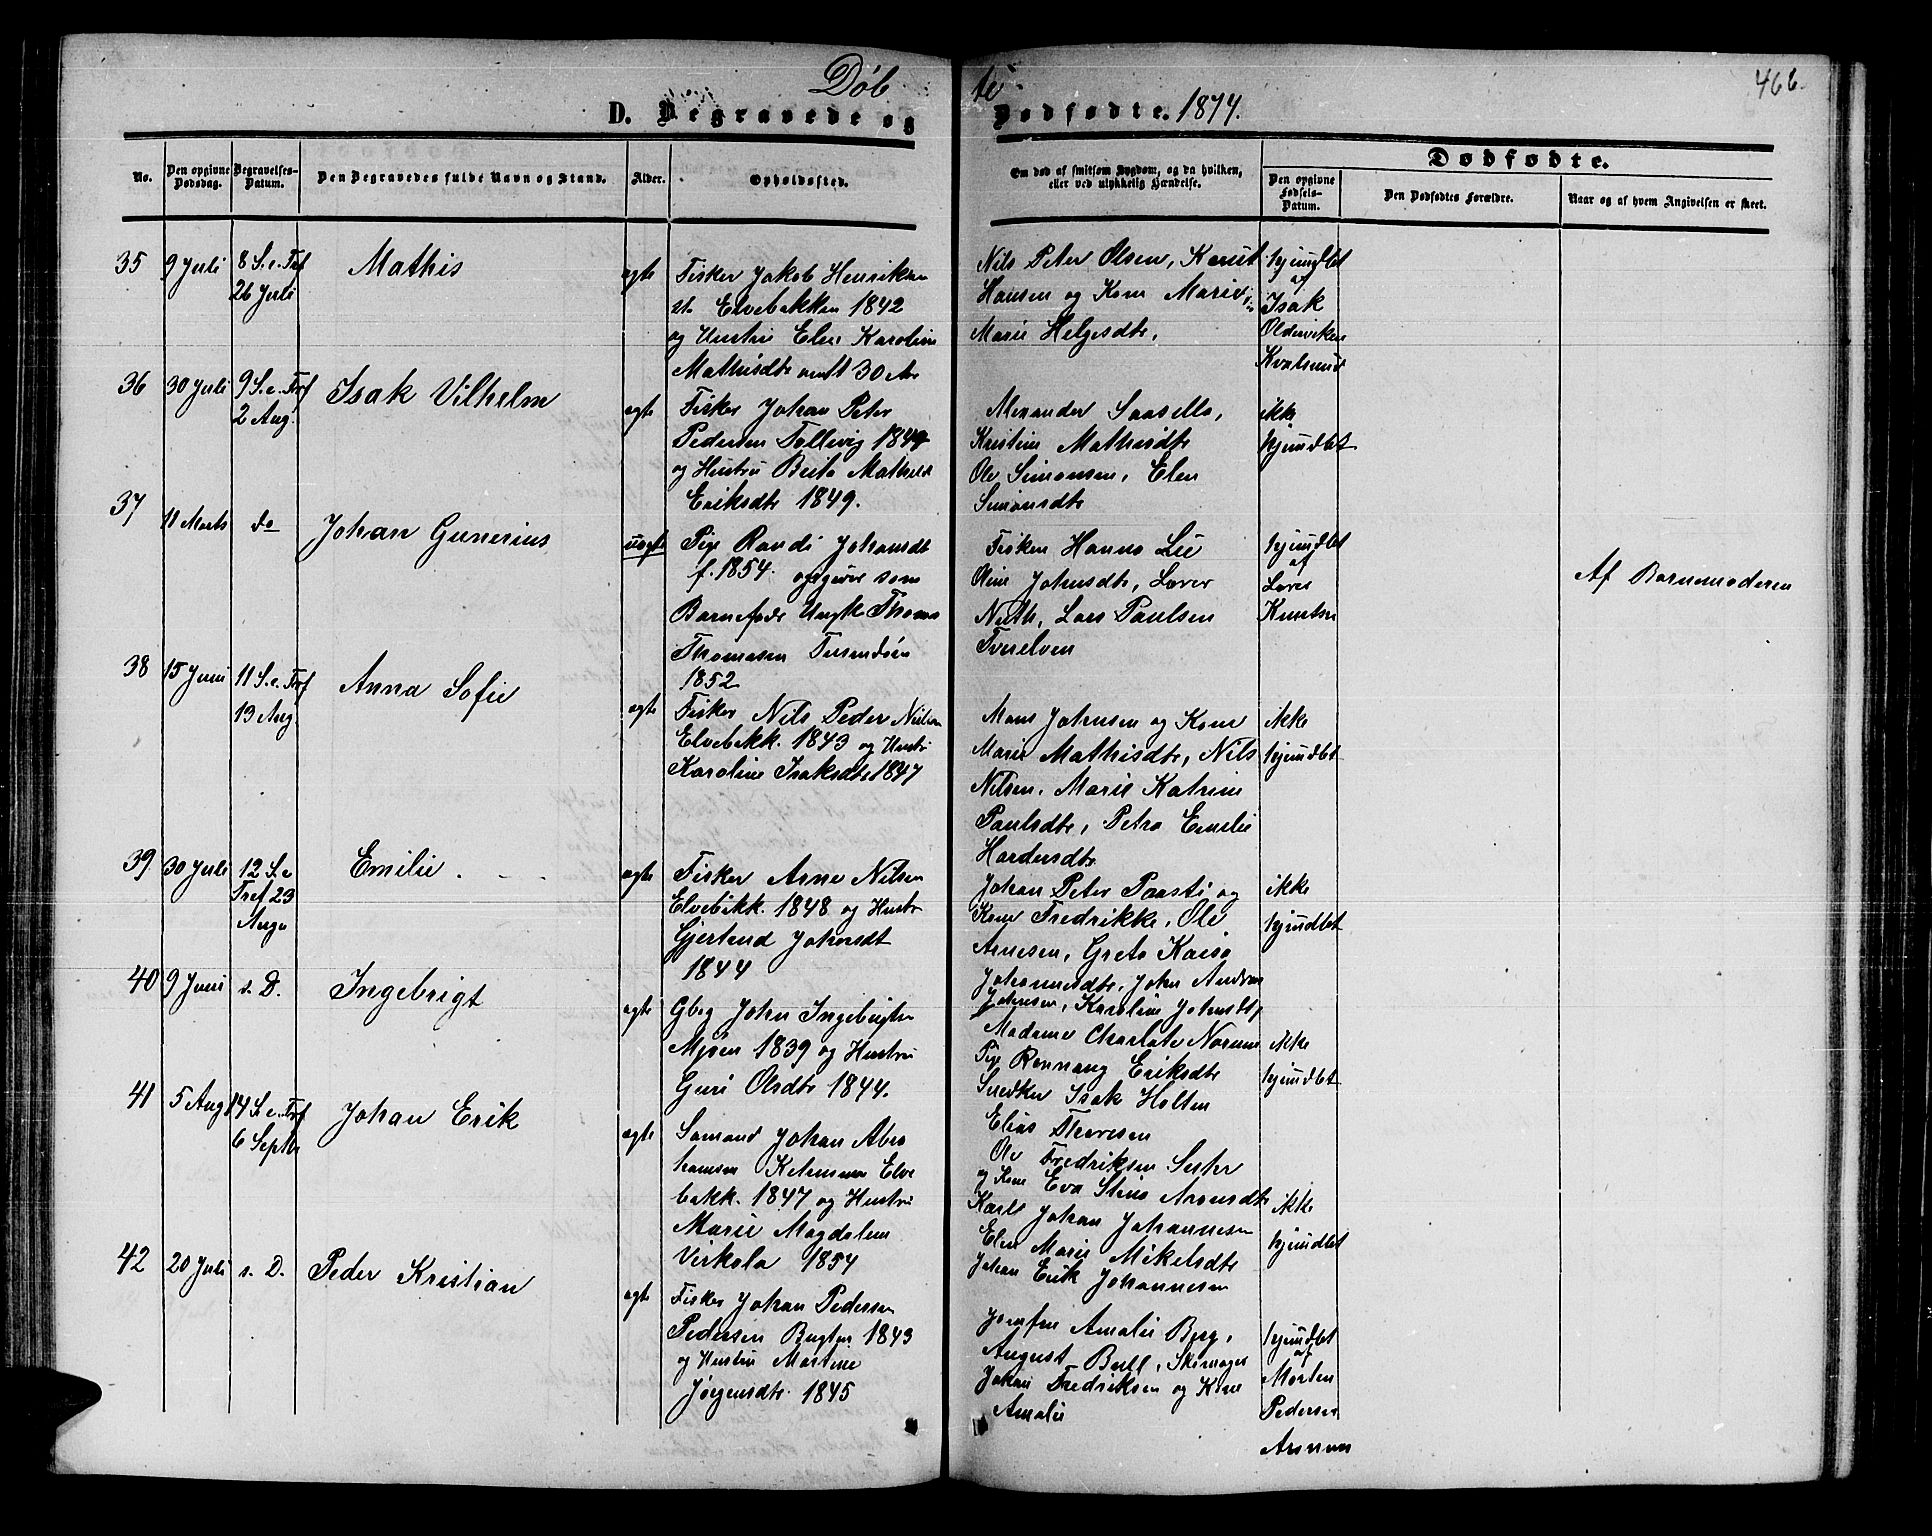 Døbte
466.
D. Begravede og Dødfødte. 1874.
Dødfødte.
No.
Den opgivne Dødsdag.
Begravelses-Datum.
Den Begravedes fulde Navn og Stand.
Alder.
Opholdssted.
Om død af smitsom Sygdom, og da hvilken,
eller ved ulykkelig Hændelse.
Den opgivne Fødsels-Datum.
Den Dødfødtes Forældre.
Naar og af hvem Angivelsen er skeet.
35
9 Juli
8 S. e. Tref
26 Juli
Mathis
ægte
Fisker Jakob Henriksen
Elvebakken 1842
og Hustru Elen Karoline
Mathisdtr omtr 30 Aar
Nils Peter Olsen, Knut
Hansen og Kone Marie,
Marie Helgesdtr,
hjemdbt
af
Isak
Olderviken
Kvalsund
36
30 Juli
9 S. e. Tref
2 Aug.
Isak Vilhelm
ægte
Fisker Johan Peter
Pedersen Tallvig
og Hustru Brita Mathilde
Eriksdtr 1849.
Alexander
Kristine Mathisdtr
Ole Simonsen, Elen
Simonsdtr
ikke
hjemdbt
37
11 Marts
do
Johan Gunerius
uægte
Pige Randi Johansdt
f. 1854. opgiver som
Barnefader Ungk Thomas
Thomasen
1852
Fisker Hanna Lie
Oline Johnsdtr,
Lars Paulsen
Tverelven
hjemdbt
af
Knutsen
Af Barnemoderen
38
15 Juni
11 S. e. Tref
19 Aug.
Anna Sofie
ægte
Fisker Nils Peder Nielsen
Elvebakk. 1843 og Hustru
Karoline Isaksdtr 1847
Mons Johnsen og Kone
Marie Mathisdtr, Nils
Nilsen, Marie Katrine
Paulsdtr, Petra Emilie
ikke
hjemdbt
39
30 Juli
12 S. e
Tref 23
Augu
Emilie.
ægte
Fisker Arne Nilsen
Elvebakk. 1848 og Hustr
Gjertrud Johnsdt
1844
Johan Peter Paasti og
Kone Fredrikke, Ole
Arnesen, Greta Kaisa
Johannesdtr, John Andreas
Johnsen, Karoline Johnsdtr
ikke
hjemdbt
40
9 Juni
s. D.
Ingebrigt
ægte
Gbrg John Ingebrigtsen
Mjøen 1839 og Hustru
Guri Olsdtr 1844.
Madame Charlote Norum
Pige Rønnaug Eriksdtr
Snedker Isak Holten
Elias Thoresen
ikke
hjemdbt
41
5 Aug
14 S. e. Tref
6 Septbr
Johan Erik
ægte
Sømand Johan Abra
hamsen Elve
bakk. 1847 og Hustru
Marie Magdalena
Virkola 1854
Ole Fredriksen Suhr
og Kone Eva Stina Aronsdtr
Karl Johan Johannesen
Elen Marie Mikelsdtr
Johan Erik Johannesen
ikke
hjemdbt
42
20 Juli
s. D.
Peder Kristian
ægte
Fisker Johan Pedersen
Pedersen Bugten 1843
og Hustru Martine
Jørgensdtr. 1845
Jomfru Amalie Berg,
August Bull, Skomager
Johan Fredriksen og Kone
Amalie
hjemdbt
af
Morten
Pedersen